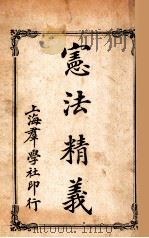 憲法精義
上海群學社印行